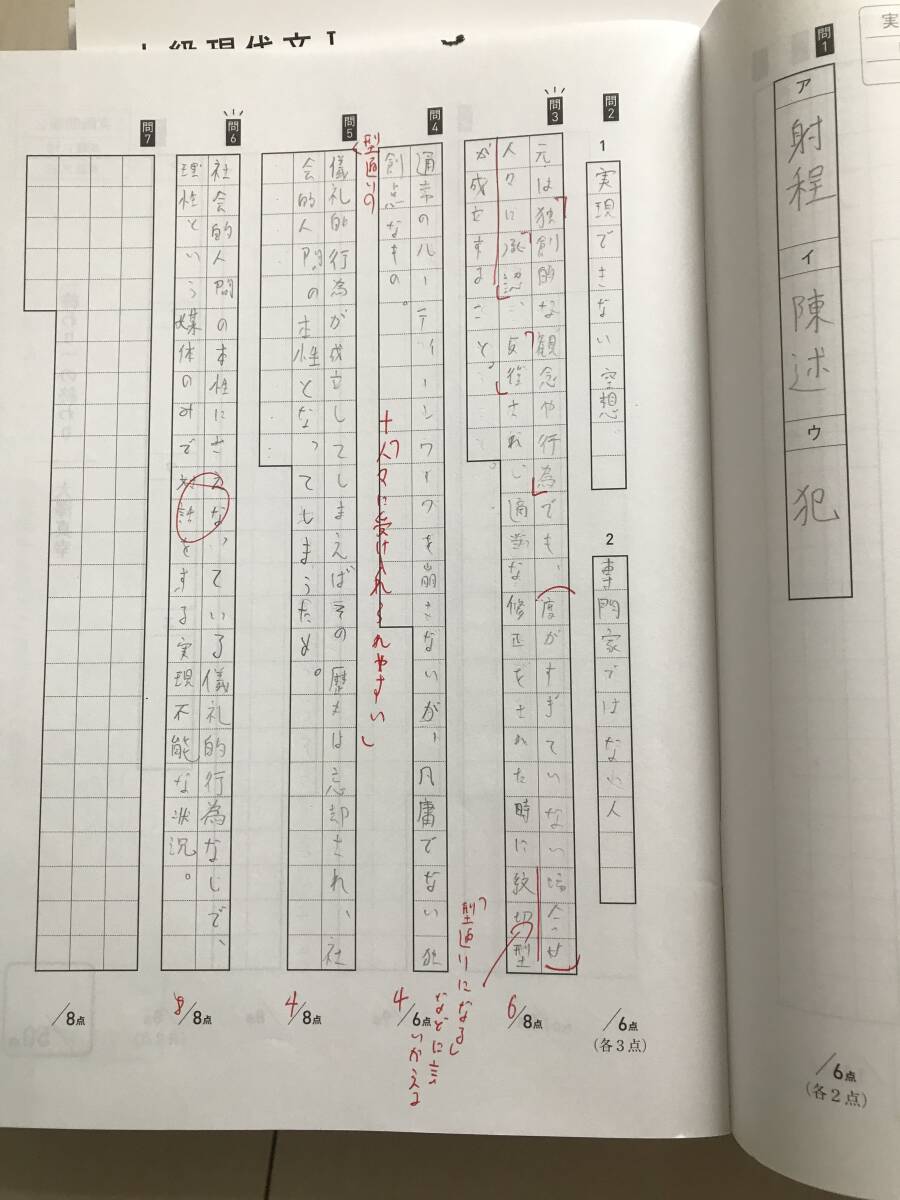 上級現代文Ⅰ
実
問1
ア
射程
イ
陳述
ウ
犯
/6点
(各2点)
問2
1
実現できない空想
2
専門家ではない人
/6点
(各3点)
問3
元は独創的な観念や行為でも、度がすぎていない場合
人々に承認、反復され、適当な修正をされた時に紋切型
が成立すること。
「型通りになる」
などに言いかえる
6/8点
問4
通常のルーティーンワークを崩さないが、凡庸でない独
創的なもの。
+「人々に受け入れられやすい」
4/6点
問5
型通りの
儀礼的行為が成立してしまえばその歴史は忘却され、社
会的人間の本性となってしまうため。
4/8点
問6
社会的人間の本性にさえなっている儀礼的行為なしで、
理性という媒体のみで対話をする実現不能な状況。
8/8点
問7
/8点